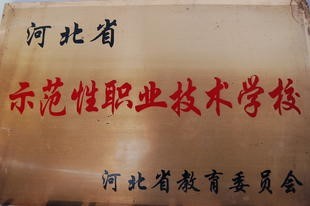 河北省
示范性职业技术学校
河北省教育委员会